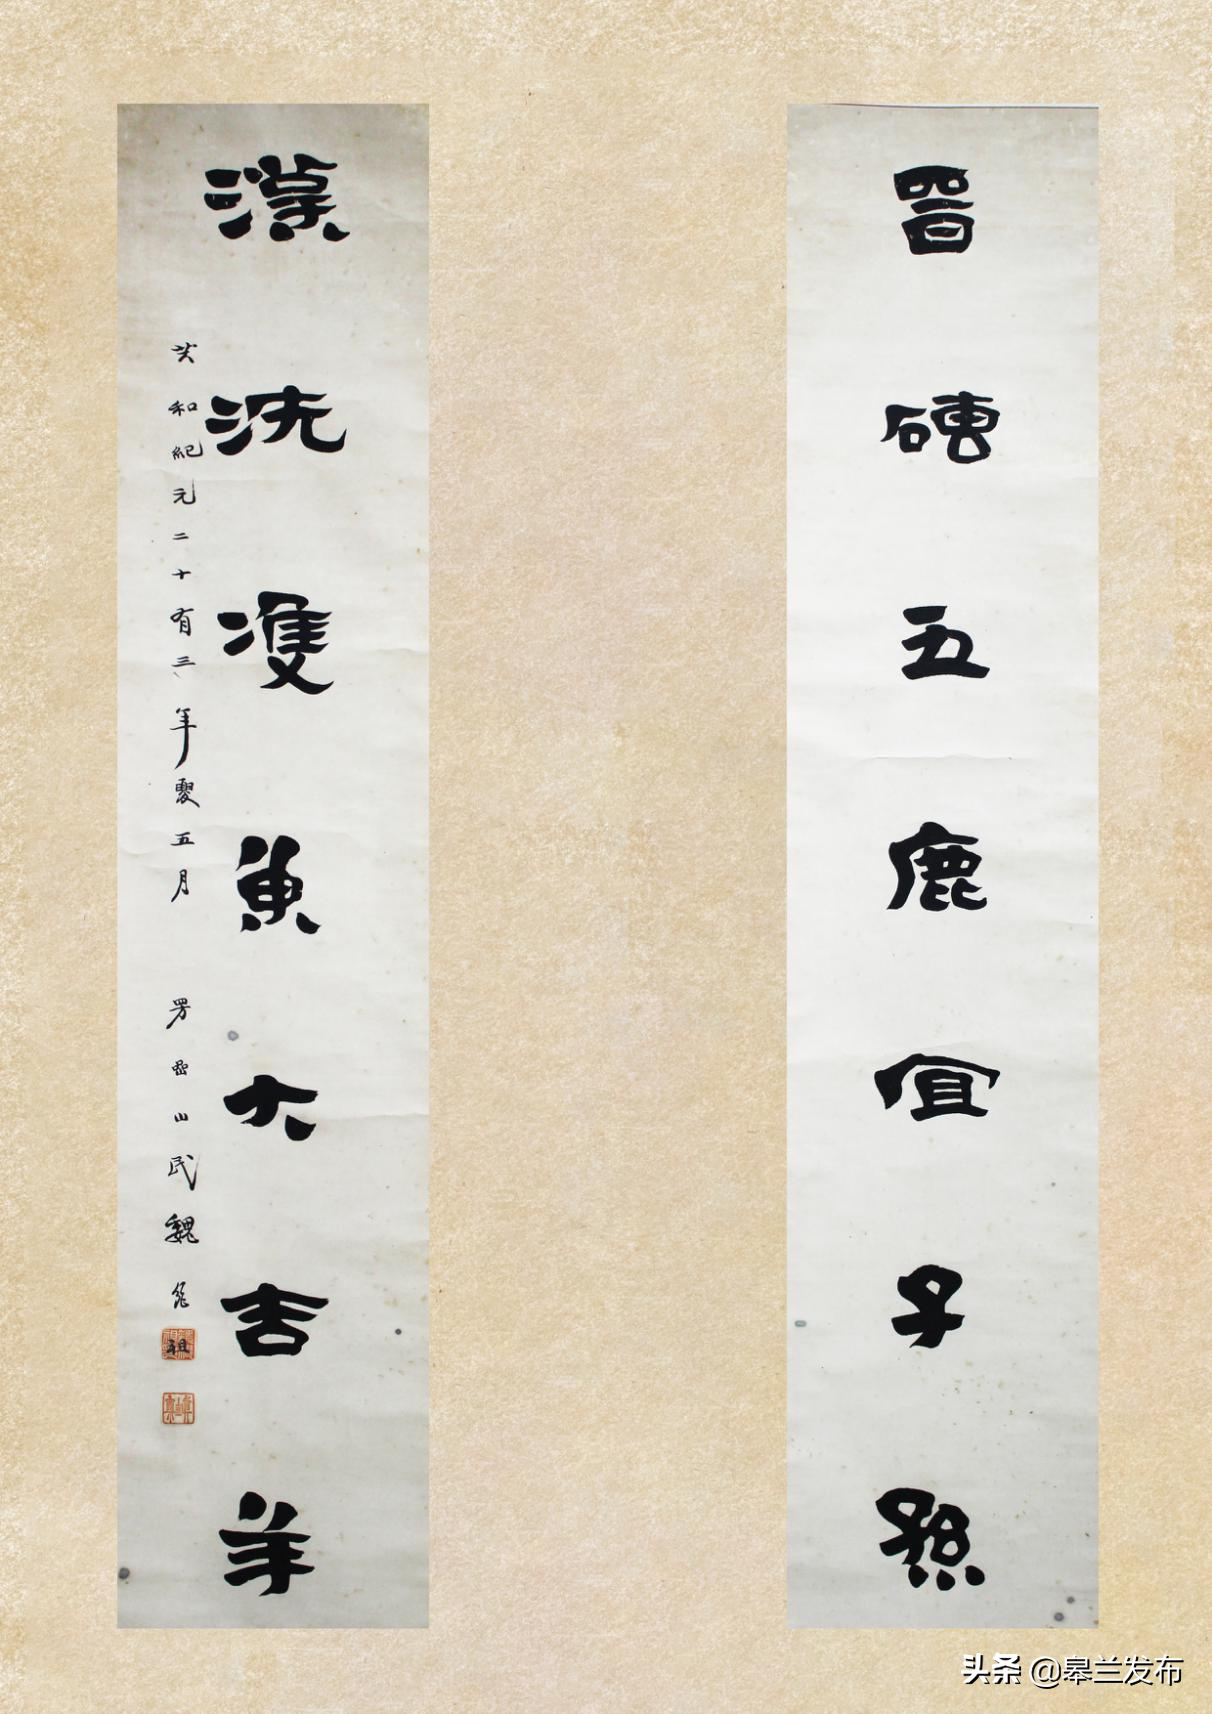 晉磚五鹿宜子孫
漢洗雙魚大吉羊
共和紀元二十有三年夏五月
山民魏 祖
头条 @皋兰发布